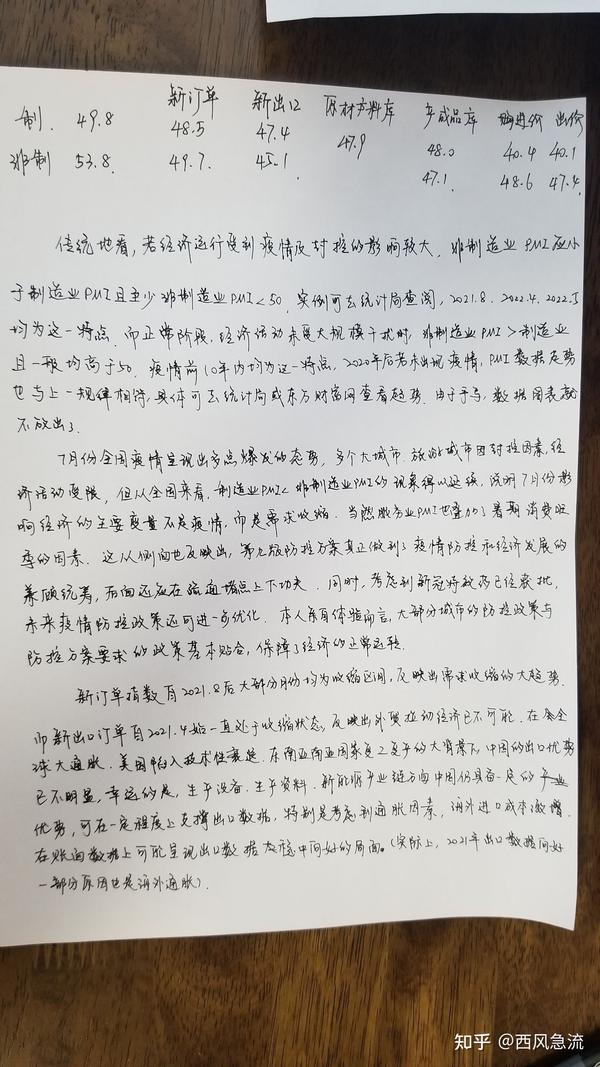 新订单 新出口 原材料库 产成品库 购进价 出价
制. 49.8 48.5 47.4 47.9 48.0 40.4 40.1
非制 53.8. 49.7. 45.1. 47.1. 48.6 47.4.
传统地看,若经济运行受到疫情及封控的影响较大,非制造业PMI应小
于制造业PMI且至少非制造业PMI<50,实例可去统计局查阅,2021.8. 2022.4. 2022.3
均为这一特点.而正常阶段,经济活动未受大规模干扰时,非制造业PMI>制造业
且一般均高于50.疫情前10年内均为这一特点,2020年后若未出现疫情,PMI数据走势
也与上一规律相符,具体可去统计局或东方财富网查看趋势.由于手写,数据图表就
不放出了.
7月份全国疫情呈现出多点爆发的态势,多个大城市.旅游城市因封控因素,经
济活动受限,但从全国来看,制造业PMI<非制造业PMI的现象得以延续,说明7月份影
响经济的主要变量不是疫情,而是需求收缩.当然服务业PMI也叠加了暑期消费旺
季的因素.这从侧面也反映出,第九版防控方案真正做到了疫情防控和经济发展的
兼顾统筹,后面还应在疏通堵点上下功夫.同时,考虑到新冠特效药已经获批,
未来疫情防控政策还可进一步优化.本人亲自体验而言,大部分城市的防控政策与
防控方案要求的政策基本贴合,保障了经济的正常运转.
新订单指数自2021.8后大部分月份均为收缩区间,反映出需求收缩的大趋势.
而新出口订单自2021.4始一直处于收缩状态,反映出外贸拉动经济已不可能.在全
球大通胀.美国陷入技术性衰退.东南亚南亚国家复工复产的大背景下,中国的出口优势
已不明显,幸运的是,生产设备.生产资料.新能源产业链方向中国仍具备一定的
优势,可在一定程度上支撑出口数据,特别是考虑到通胀因素,海外进口成本激增.
在账面数据上可能呈现出口数据态稳中向好的局面。(实际上,2021年出口数据向好
一部分原因也是海外通胀).
知乎 @西风急流